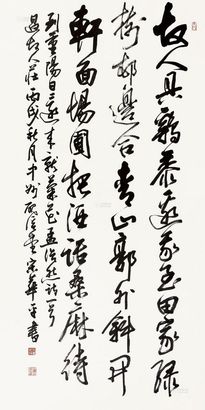 故人具鷄黍邀我至田家緑
樹邨邊合青山郭外斜開
軒面場圃把酒話桑麻待
到重陽日還來就菊花孟浩然詩一首
過故人莊丙戌秋月中州宋華平書